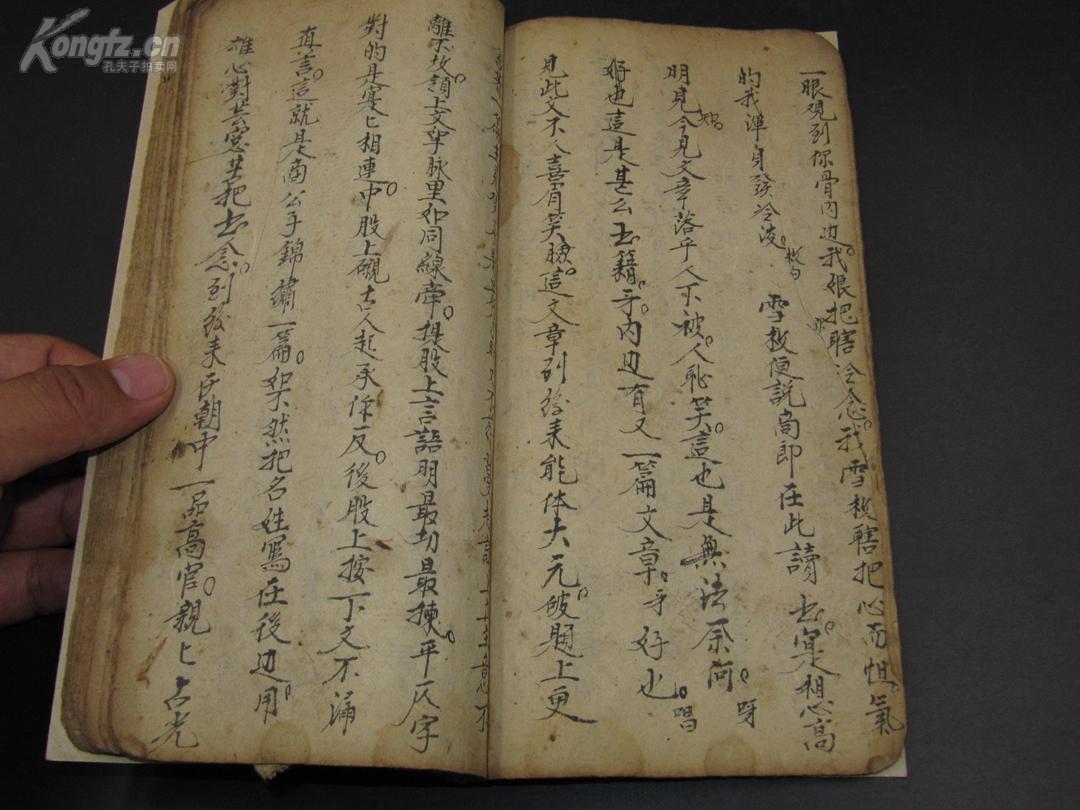 Kongfz.cn
孔夫子拍卖网
一眼观到你骨内边。我假把瞎冷念。我雪梅瞎把心而怛。氣
的我渾身發冷凌。
雪梅便説商郎在此讀書。寔是想心高
明見今見文章落乎人下被人恥笑。這也是無法奈何。呀
好也這是甚么書籍。呀。内边有又一篇文章。呀好也。唱
見此文不人喜眉笑臉。這文章到後来能体大元。破題上更
離不故。領上文穿脉里如同線牵。提股上言語明最切最揀。平仄字
對的是寔匕相連。中股上襯古人起承作反。後股上按下文不漏
真言。這就是商公子錦繡一篇。然把名姓寫在後边用。
雄心對芸窓苦把書念。到後来在朝中一品高官。親匕占光